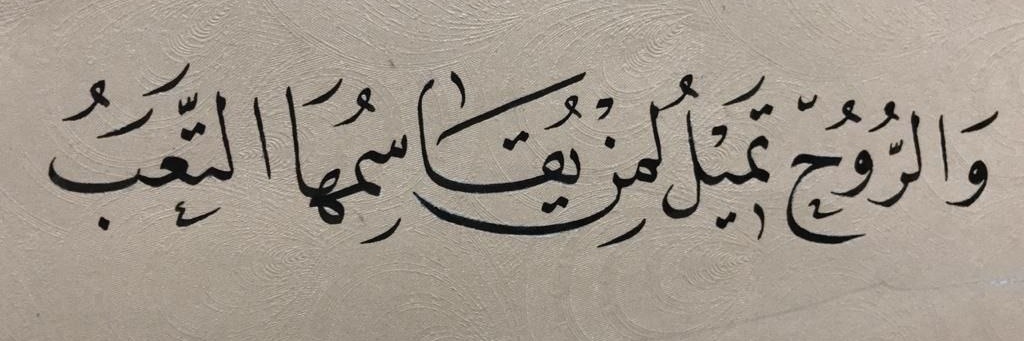 وَالرُّوحُ تَمِيْلُ لِمَنْ يُقَاسِمُهَا التَّعَبُ